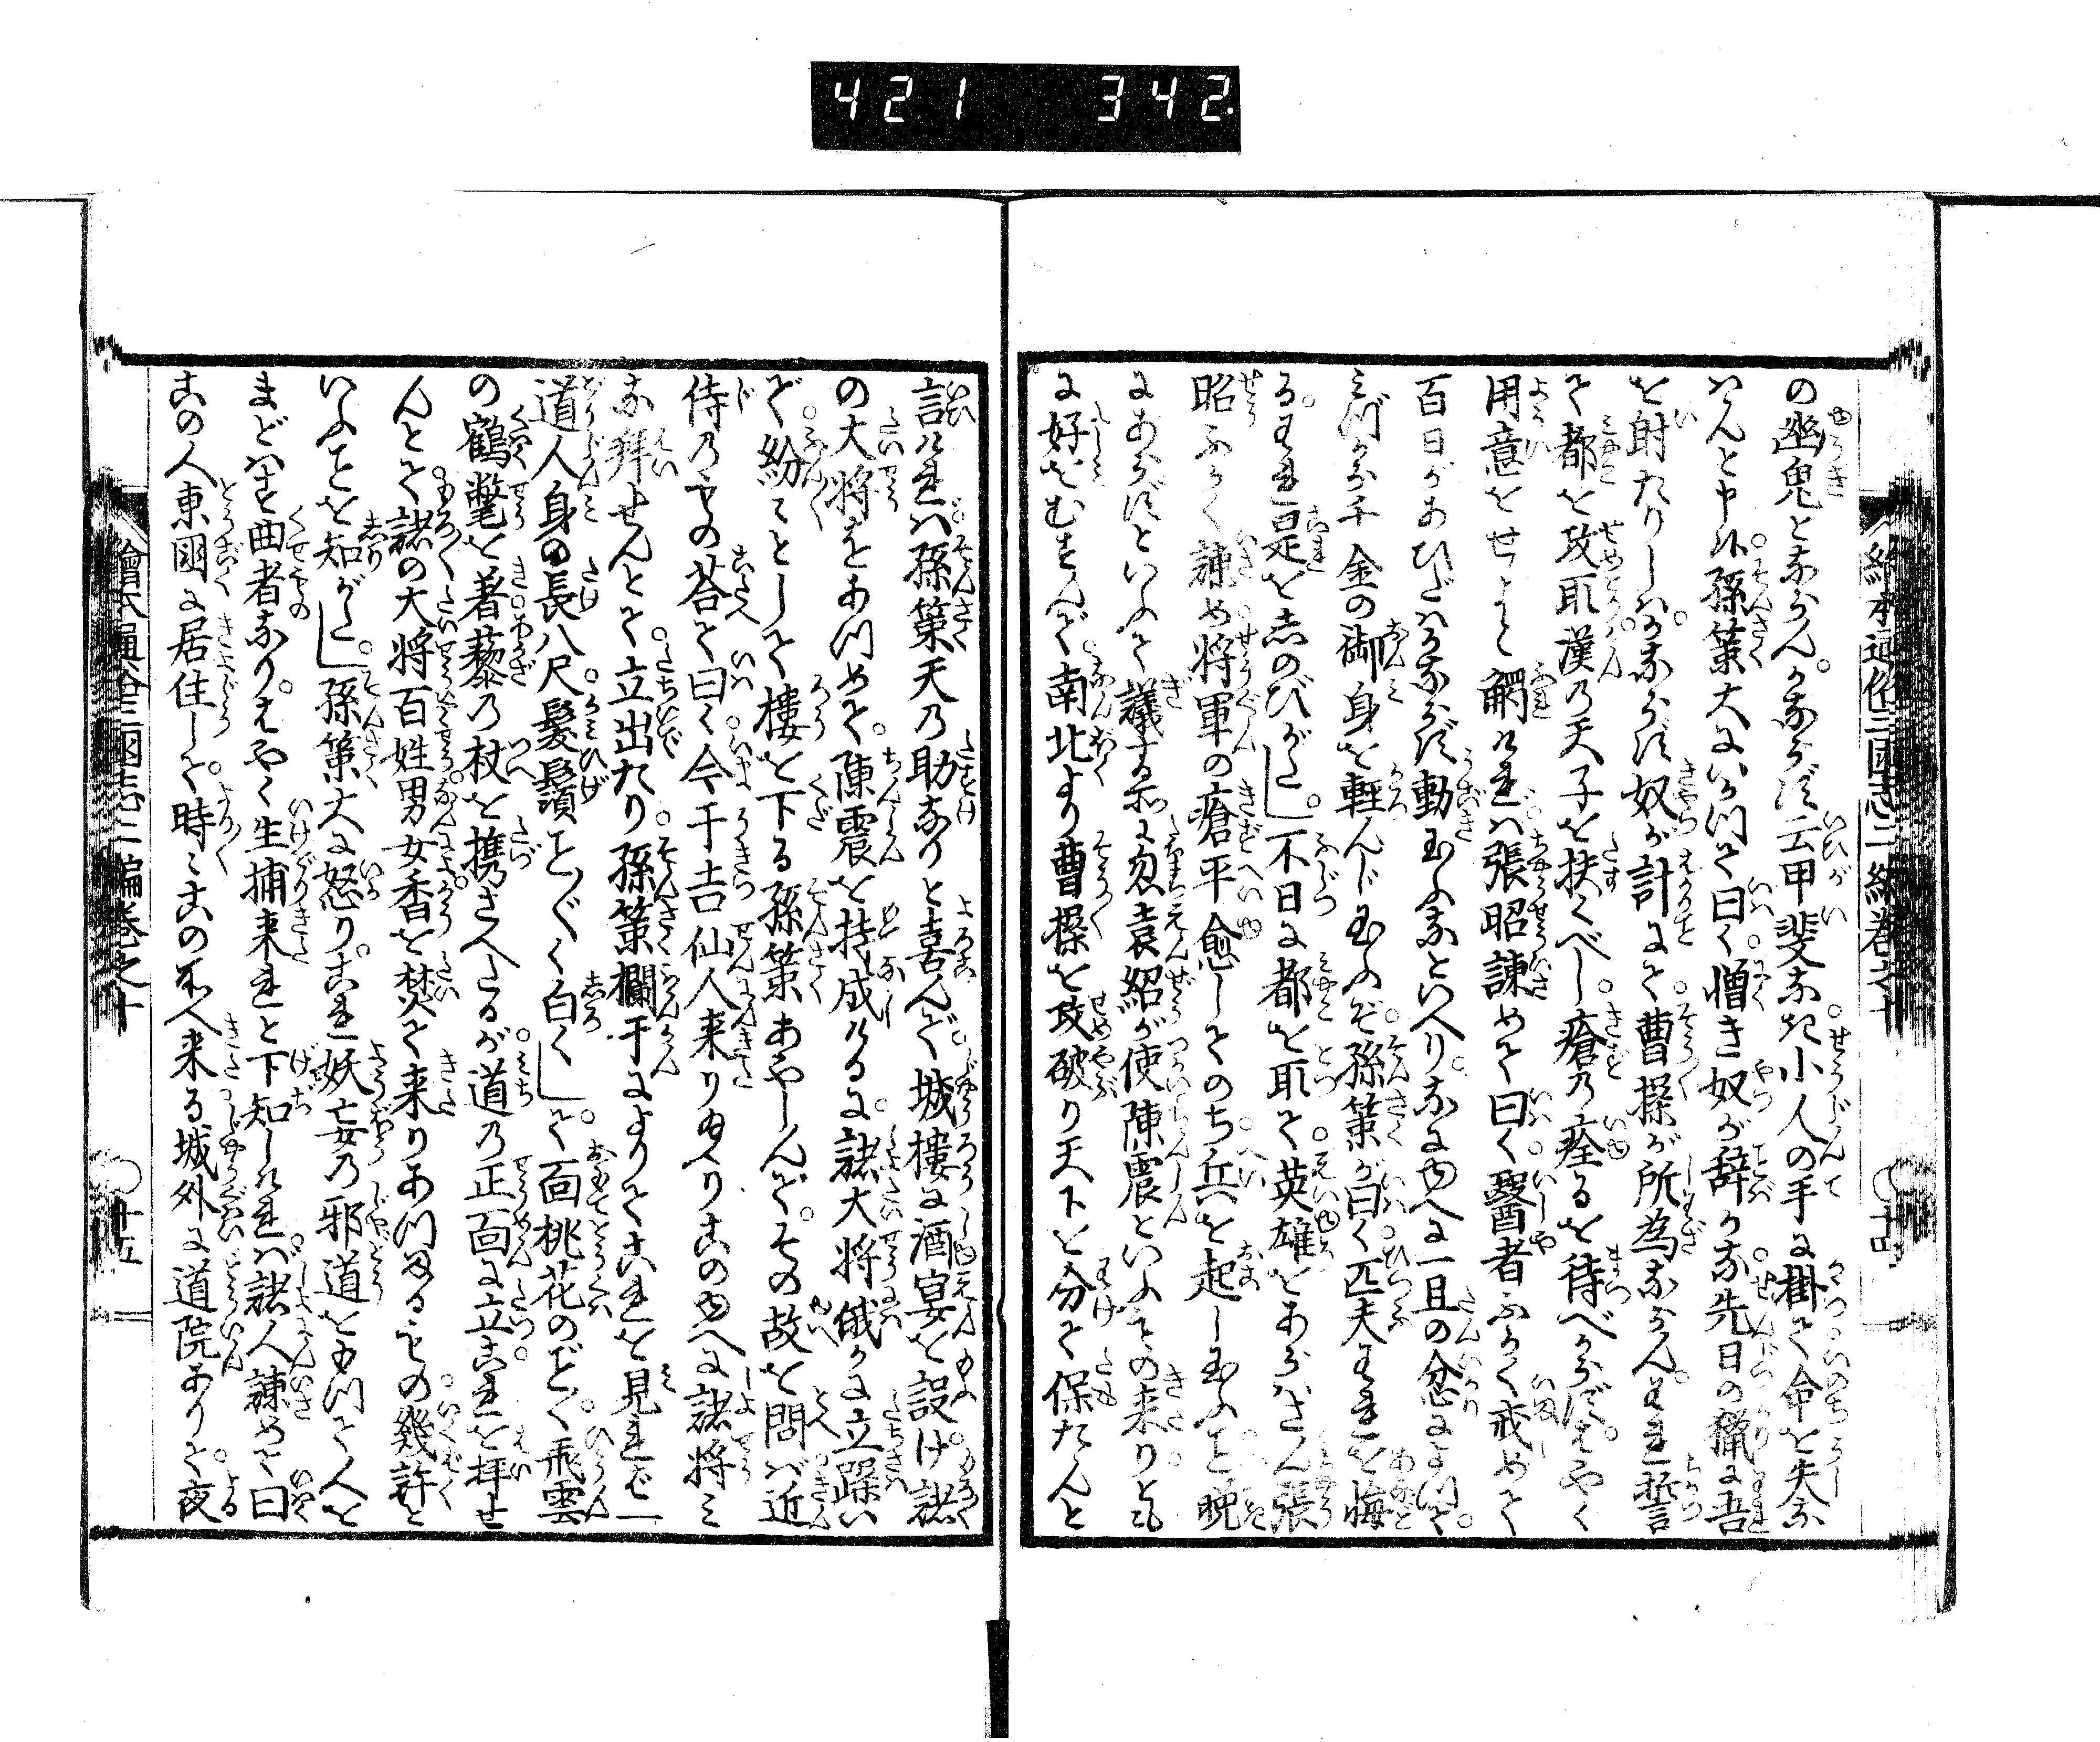 421 342.
繪本通俗三國志二編巻之十 〇十四
の幽鬼とならん。かならず云甲斐なき小人の手に掛て命を失な
はんと申ければ孫策大にいかつて曰く憎き奴が辞かな先日の猟に吾
を射たりしは。かならず奴が計にて曹操が所為ならん。われ誓
て都を攻取漢の天子を扶くべし。瘡の痊るを待べからず。はやく
用意をせよと觸ければ張昭諫めて曰く醫者ふかく戒めて
百日があひだはかならず動玉ふなといへり。なにゆへに一旦の忿によつて。
みづから千金の御身を軽んじ玉ふぞ。孫策が曰く匹夫われを侮
る。われ是を志のびがたし。不日に都を取て英雄をあらはさん張
昭ふかく諫め将軍の瘡平愈してのち兵を起し玉ふとも晩
にあらずといふて議する所に忽袁紹が使陳震といふもの来りとも
に好をむすんで南北より曹操を攻破り天下を分て保たんと
言ければ孫策天の助なりと喜んで城樓に酒宴を設け諸
の大将をあつめて。陳震を持成けるに諸大将俄かに立躁い
で紛々として樓を下る孫策あやしんで。その故を問ば近
侍のもの荅て曰く今于吉仙人来り玉へりこのゆへに諸将み
な拜せんとて立出たり孫策欄干によりてこれを見れば一
道人身の長八尺髪鬚ことごとく白くして面桃花のごとく飛雲
の鶴氅を着藜の杖を携さへたるが道の正面に立これを拝せ
んとて諸の大将百姓男女香を焚て来りあつまるもの幾許と
いふことを知がたし。孫策大に怒り。これ妖妄の邪道をもつて人を
まどはす曲者なり。はやく生捕来れと下知しければ諸人諫めて曰
この人東國に居住して。時々この所へ来る城外に道院ありて。夜
繪本通俗三國志二編巻之十 〇十五